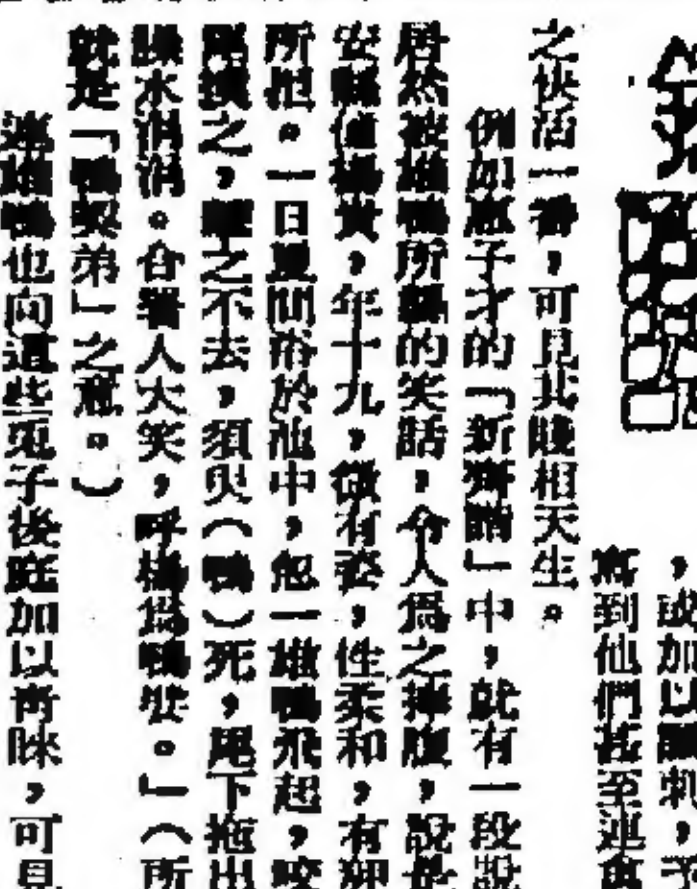 ，或加以諷刺，
寫到他們甚至連禽
之快活一番，可見其賤相天生。
例如袁子才的「新齊諧」中，就有一段說
居然被雄鴨所姦的笑話，令人為之捧腹，說是
安縣值楊貴，年十九，微有姿，性柔和，有狎
所拒。一日夏間浴於池中，忽一雄鴨飛起，咬
之，之不去，須臾（鴨）死，尾下拖出
臊水涓涓。合署人大笑，呼楊為鴨嬖。」（所
就是「鴨契弟」之意。）
連雄鴨也向這些兎子後庭加以青睞，可見